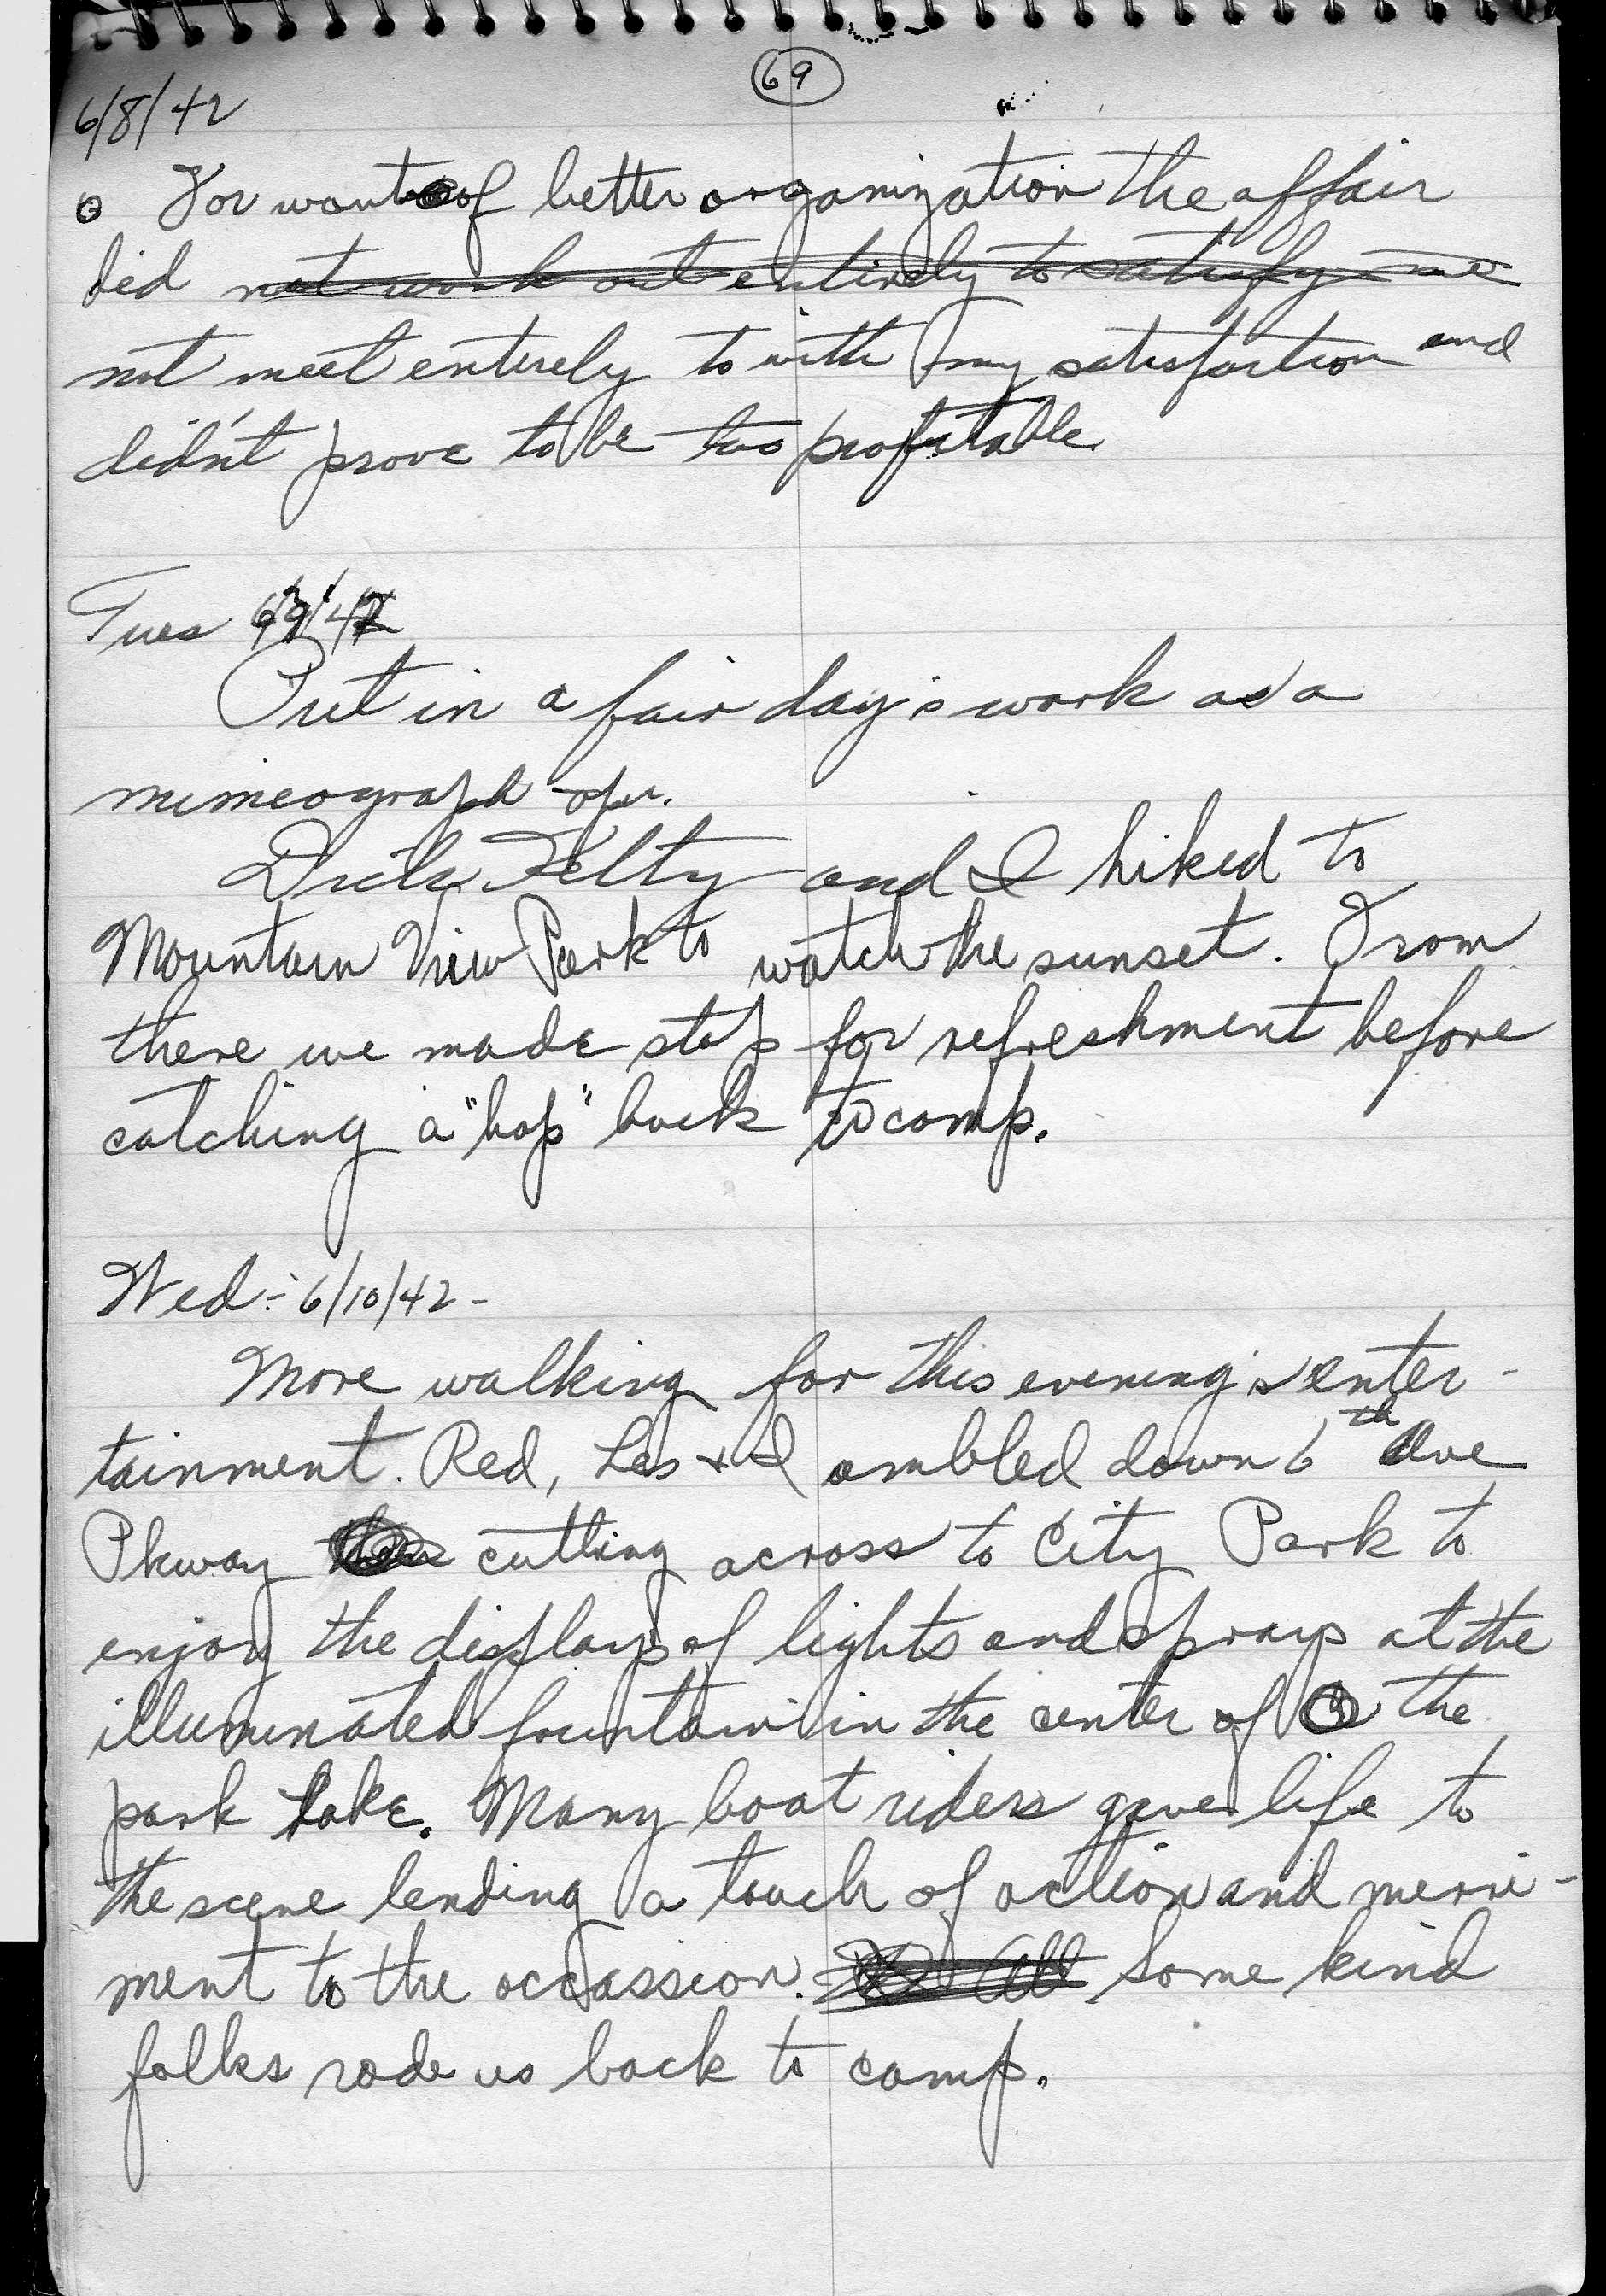 69
6/8/42
For want of better organization the affair
did not work out entirely to satisfy me
not meet entirely to with my satisfaction and
didn't prove to be too profitable.
Tues 6/9/42
Put in a fair day's work as a
mimeograph opr.
Dick Felty and I hiked to
Mountain View Park to watch the sunset. From
there we made stop for refreshment before
catching a "hop" back to camp.
Wed:- 6/10/42-
More walking for this evening's enter-
tainment. Red, Les & I ambled down 6th Ave
Pkway then cutting across to City Park to
enjoy the displays of lights and sprays at the
illuminated fountain in the center of the
park lake. Many boat riders gave life to
the scene lending a touch of action and merri-
ment to the occassion. All Some kind
folks rode us back to camp.